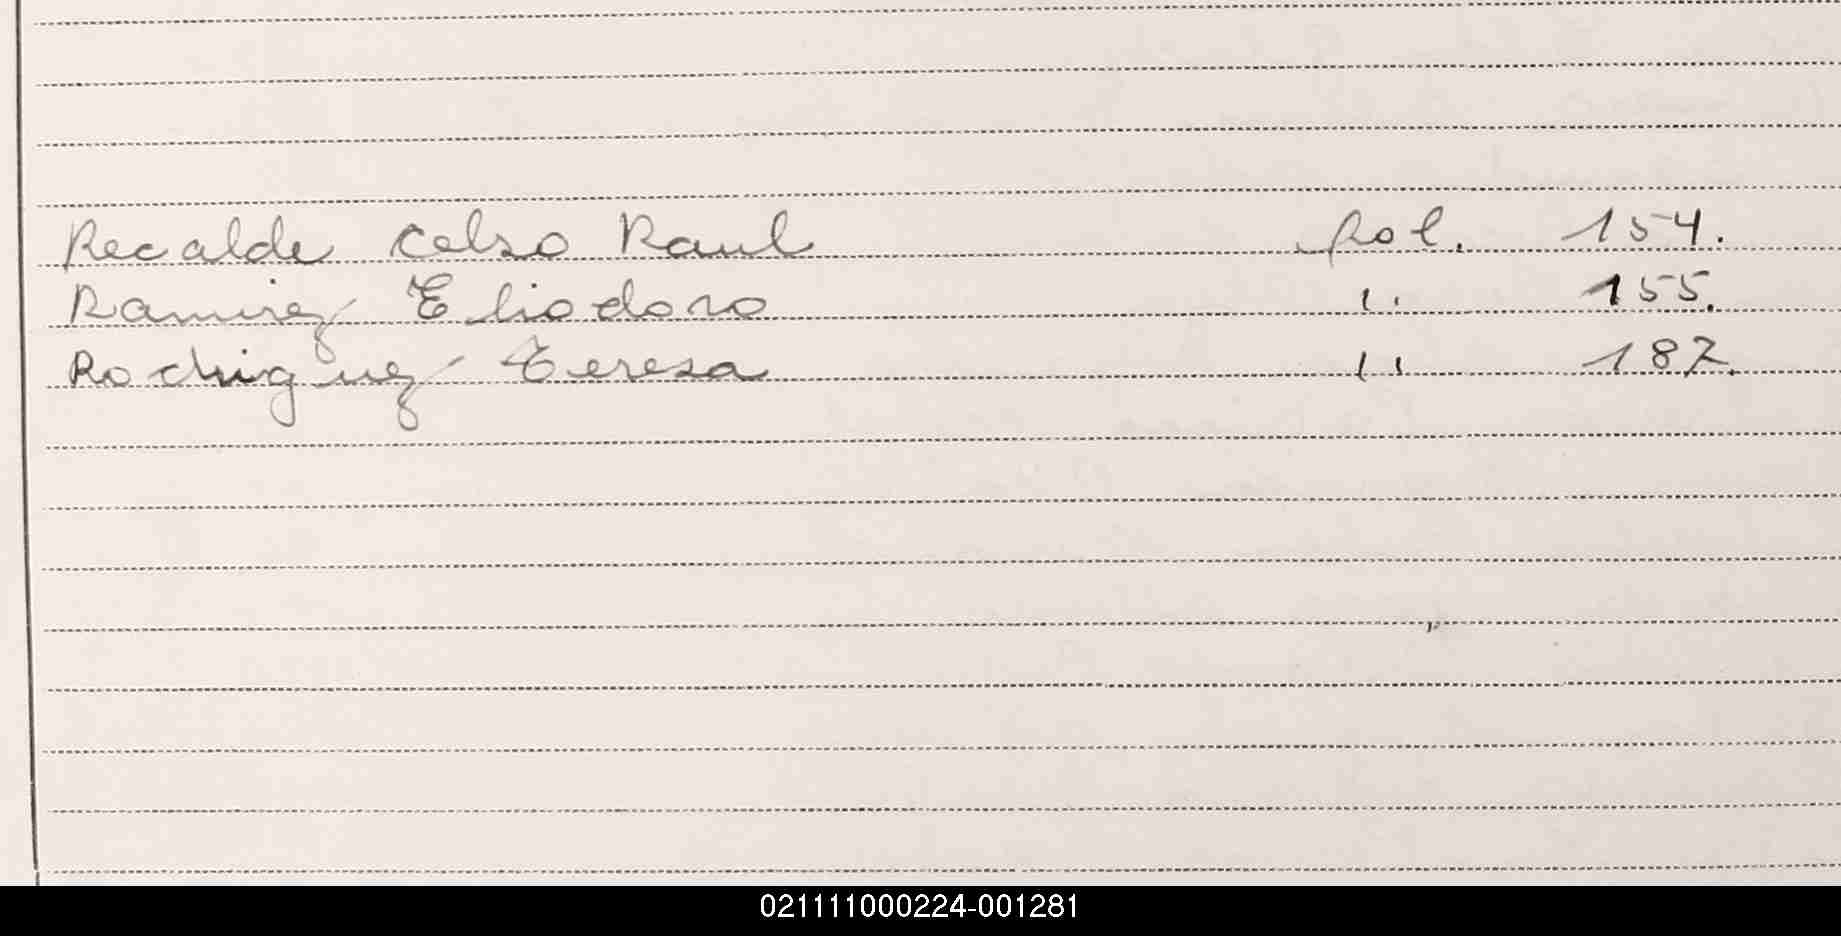 Recalde Celso Raul fol. 154.
Ramirez Eliodoro " 155.
Rodriguez Teresa " 187.
021111000224-001281